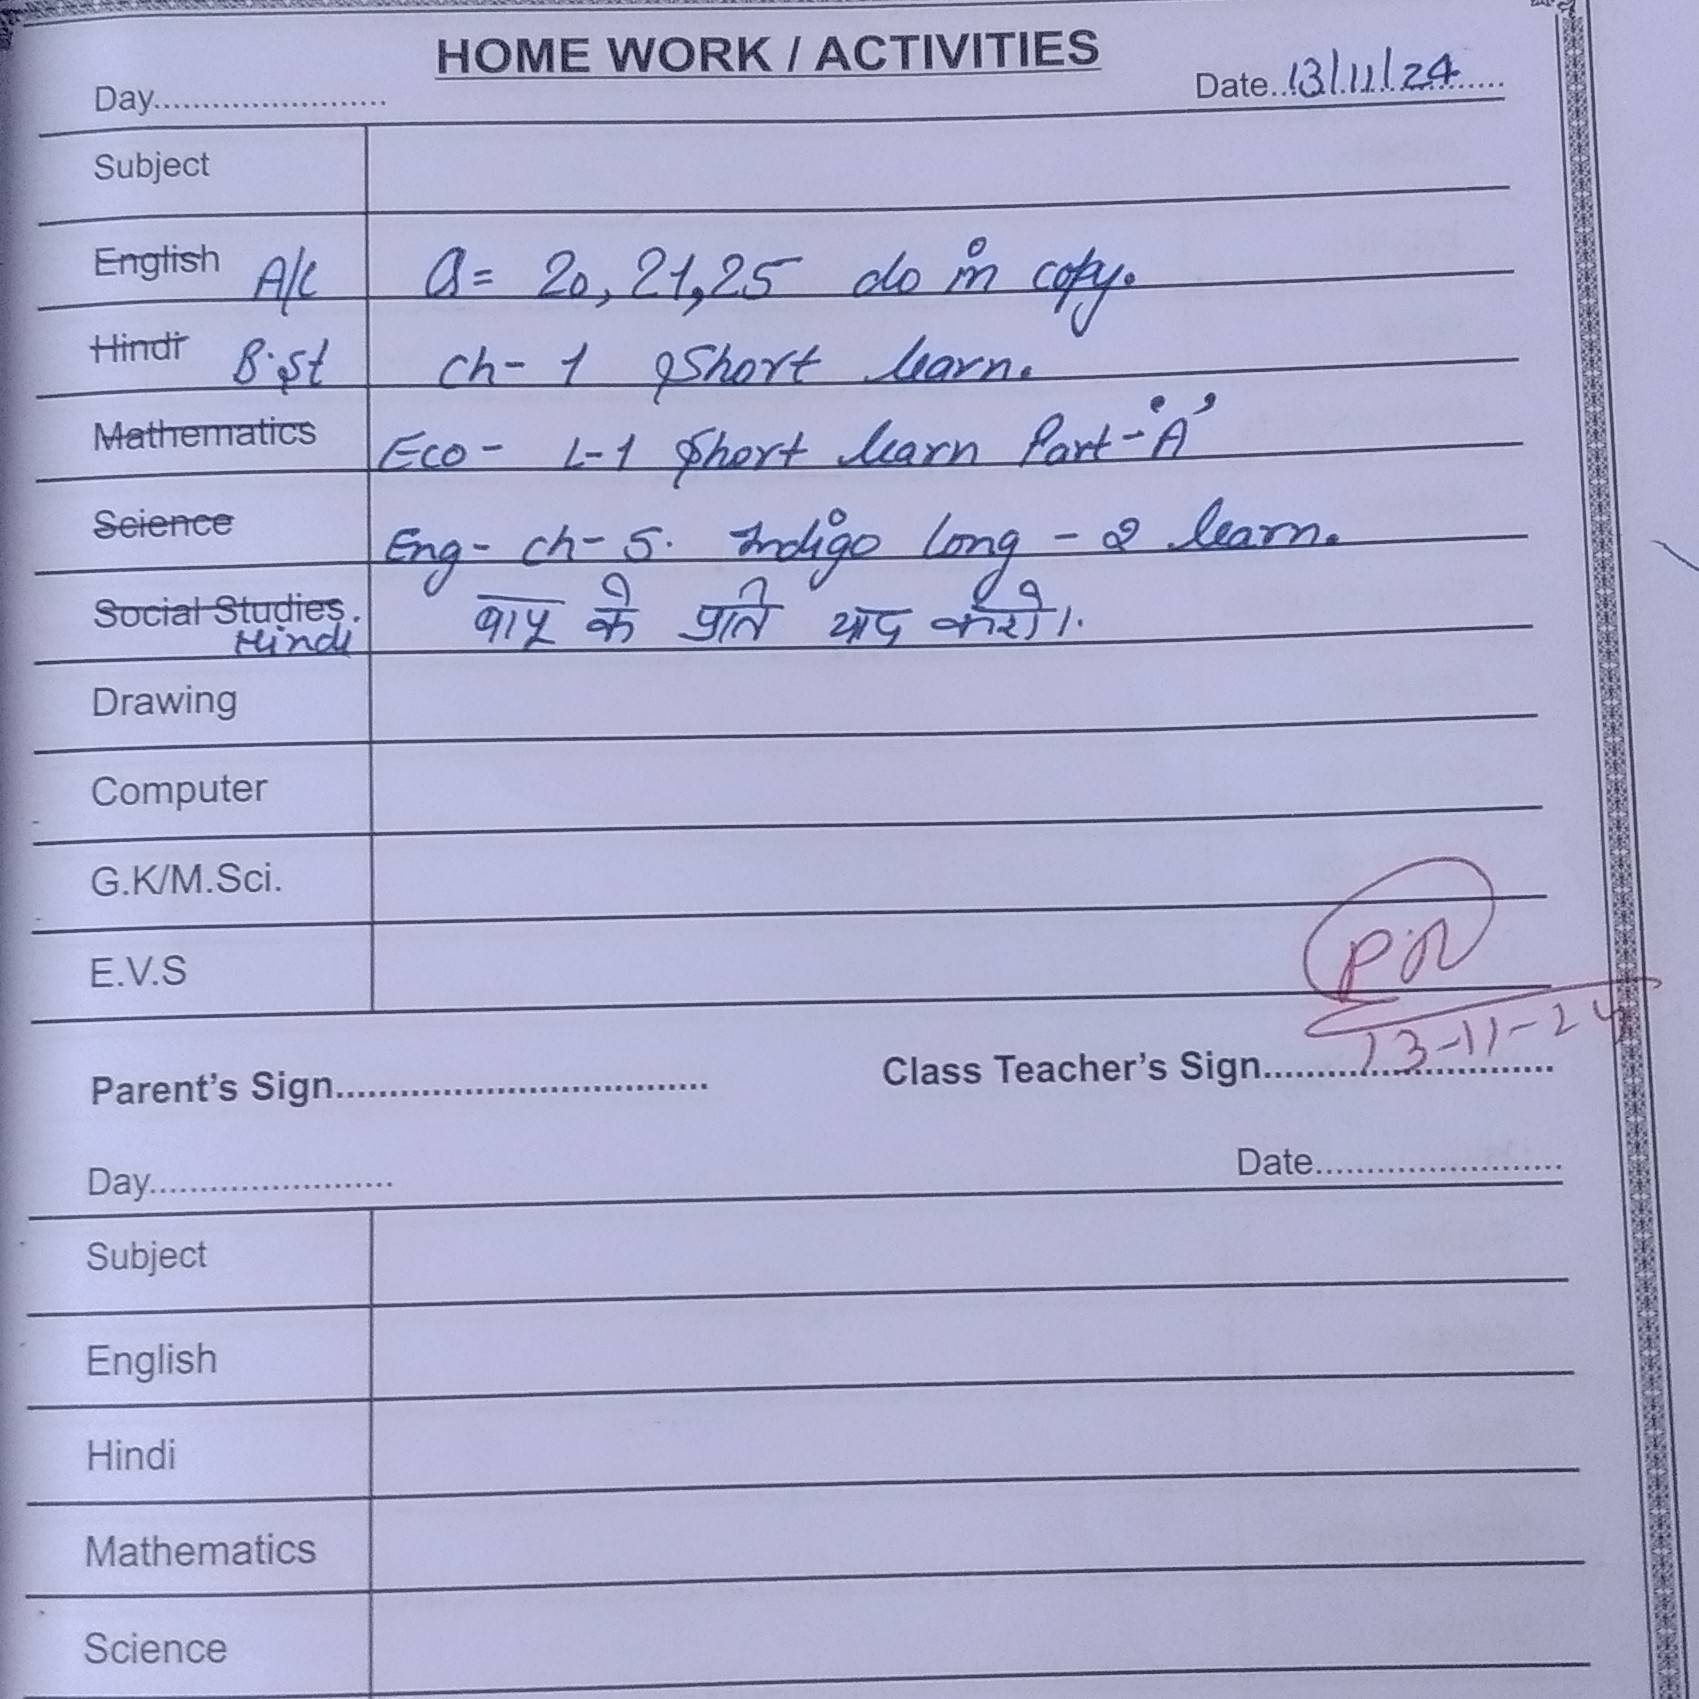 HOME WORK / ACTIVITIES
Day........................ Date..13/11/24.....
Subject
English A/c Q= 20, 21, 25 do in copy.
Hindi B.st Ch- 1 Short learn.
Mathematics Eco- L-1 Short learn Part-'A'
Science Eng- ch- 5. Indigo long - 2 learn.
Social Studies. Hindi के प्रति याद करो।.
Drawing
Computer
G.K/M.Sci.
E.V.S
13-11-24
Parent's Sign.................................. Class Teacher's Sign..........................
Day........................ Date........................
Subject
English
Hindi
Mathematics
Science